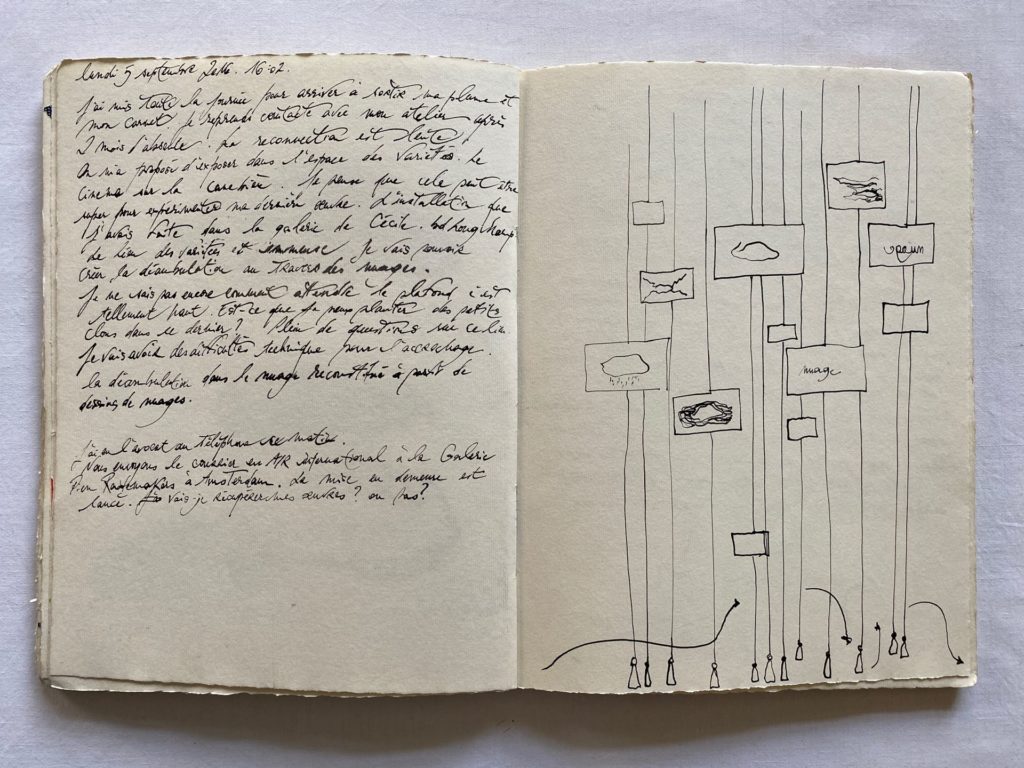 lundi 5 septembre 2016. 16:02.
J'ai mis toute la journée pour arriver à sortir ma plume et
mon carnet. Je reprends contacte avec mon atelier après
2 mois d'absence. La reconnection est lente.
On m'a proposé d'exposer dans l'espace des Variétés. Le
cinema sur la Canebière. Je pense que cela peut être
super pour expérimenter ma dernière œuvre. L'installation que
j'avais faite dans la galerie de Cécile. bd Longchamp
Le lieu des variétés est immense. Je vais pouvoir
créer la déambulation au travers des nuages.
Je ne sais pas encore comment atteindre le plafond, c'est
tellement haut. Est-ce que je peux planter des petits
clous dans ce dernier? Plein de questions sur ce lieu.
Je vais avoir des difficultés technique pour l'accrochage.
la déambulation dans le nuage reconstitué à partir de
dessins de nuages.
J'ai eu l'avocat au téléphone ce matin.
Nous envoyons le courrier en A/R international à la Galerie
à Amsterdam. La mise en demeure est
lancé. Vais-je récupérer mes œuvres? ou pas?
nuage